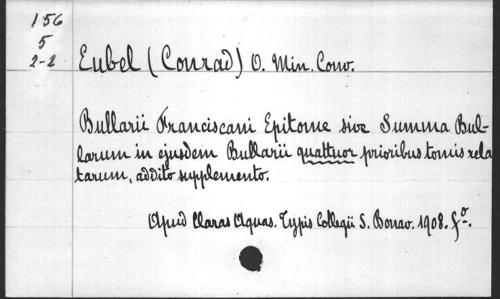 156
5
2-2
Eubel (Conrad) O. Min. Conv.
Bullarii Franciscani Epitome sive Summa Bul-
larum in ejusdem Bullarii quattuor prioribus tomis rela
tarum, addito supplemento.
Apud Claras Aquas. Typis Collegii S. Bonav. 1908. fº.